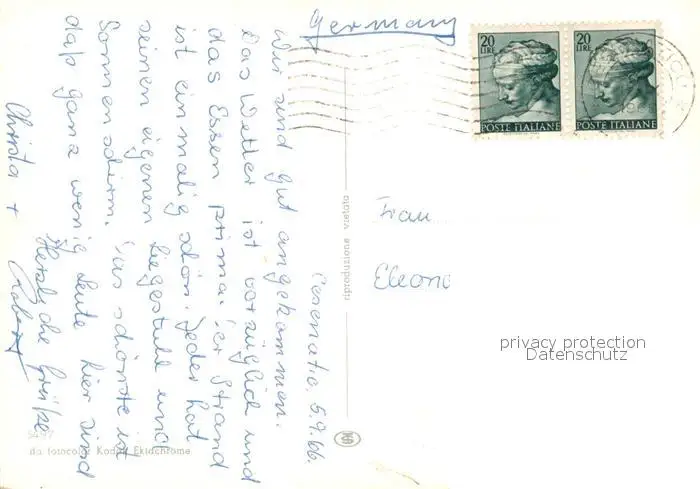 Germany
Cesenatic, 5.9.66.
Wir sind gut angekommen.
Das Wetter ist vorzüglich und
das Essen prima. Der Strand
ist einmalig schön. Jeder hat
seinen eigenen Liegestuhl und
Sonnenschirm. Das schönste ist
daß ganz wenig Leute hier sind
Herzliche Grüße
Christa +
20
LIRE
POSTE ITALIANE
20
LIRE
POSTE ITALIANE
riproduzione vietata
Frau
Eleono
privacy protection
Datenschutz
da fotocolor Kodak Ektachrome